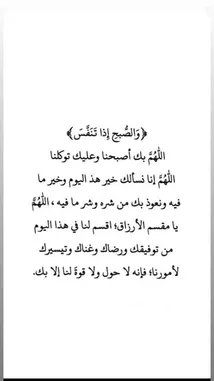 ﴿وَالصُّبحِ إِذا تَنَفَّسَ﴾
اللَّهُمَّ بك أصبحنا وعليك توكلنا
اللَّهُمَّ إنا نسألك خير هذ اليوم وخير ما
فيه ونعوذ بك من شره وشر ما فيه ، اللَّهُمَّ
يا مقسم الأرزاق؛ اقسم لنا في هذا اليوم
من توفيقك ورضاك وغناك وتيسيرك
لأمورنا؛ فإنه لا حول ولا قوة لنا إلا بك.